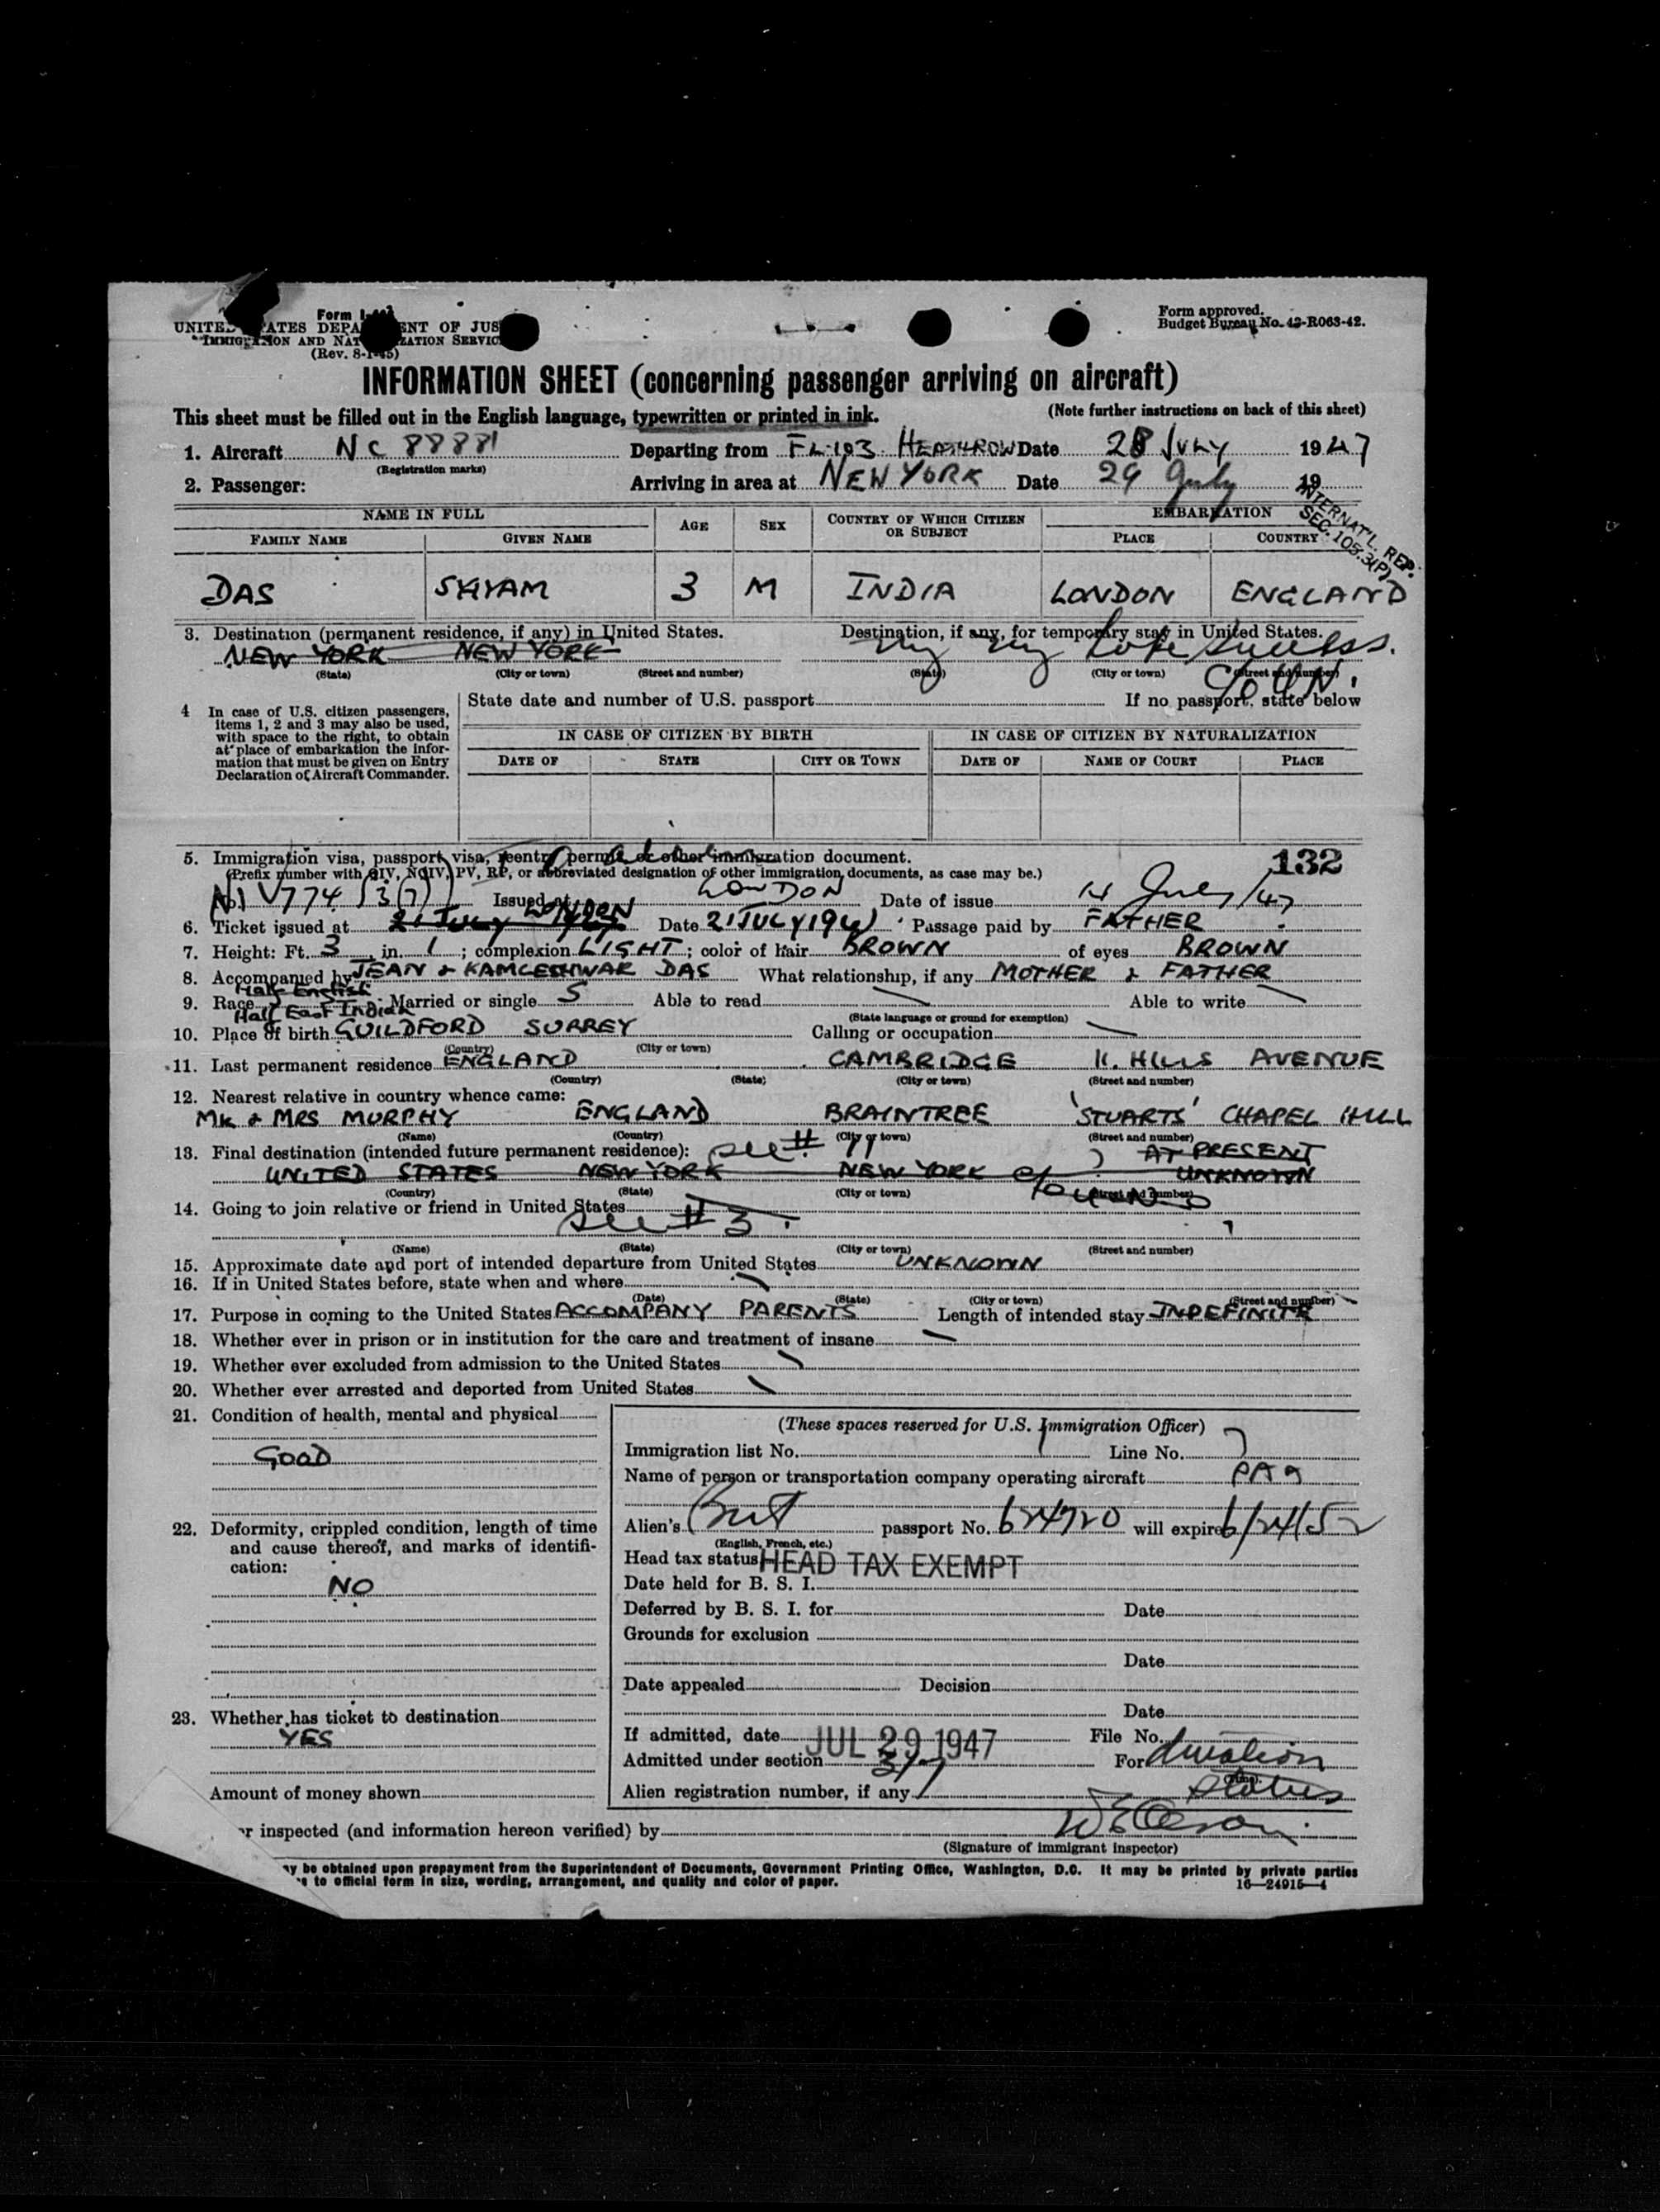 Form I-
UNITED STATES DEPARTMENT OF JUS
IMMIGRATION AND NATURALIZATION SERVIC
(Rev. 8-1-45)
Form approved.
Budget Bureau No. 43-R063-42.
INFORMATION SHEET (concerning passenger arriving on aircraft)
This sheet must be filled out in the English language, typewritten or printed in ink. (Note further instructions on back of this sheet)
1. Aircraft NC 88881 Departing from FL-103 HEATHROW Date 28 JULY 1947
(Registration marks)
2. Passenger: Arriving in area at NEW YORK Date 29 July 19
INTERNAT'L. REP.
SEC. 105.3(P)
NAME IN FULL AGE SEX COUNTRY OF WHICH CITIZEN OR SUBJECT EMBARKATION
FAMILY NAME GIVEN NAME PLACE COUNTRY
DAS SHYAM 3 M INDIA LONDON ENGLAND
3. Destination (permanent residence, if any) in United States. Destination, if any, for temporary stay in United States.
NEW YORK NEW YORK NY NY Lake Success.
(State) (City or town) (Street and number) (State) (City or town) (Street and number)
c/o U.N.
4 In case of U.S. citizen passengers, items 1, 2 and 3 may also be used, with space to the right, to obtain at place of embarkation the information that must be given on Entry Declaration of Aircraft Commander.
State date and number of U.S. passport If no passport, state below
IN CASE OF CITIZEN BY BIRTH IN CASE OF CITIZEN BY NATURALIZATION
DATE OF STATE CITY OR TOWN DATE OF NAME OF COURT PLACE
132
5. Immigration visa, passport visa, reentry permit, or other immigration document.
(Prefix number with QIV, NQIV, PV, RP, or abbreviated designation of other immigration documents, as case may be.)
(No.) V774 3(7) Issued at LONDON Date of issue 14 July/47
6. Ticket issued at 21 July LONDON Date 21 JULY 194 Passage paid by FATHER
7. Height: Ft. 3 in. 1; complexion LIGHT; color of hair BROWN of eyes BROWN
8. Accompanied by JEAN & KAMLESHWAR DAS What relationship, if any MOTHER & FATHER
9. Race Half English Half East Indian Married or single S Able to read Able to write
(State language or ground for exemption)
10. Place of birth GUILDFORD SURREY Calling or occupation
(Country) (City or town)
11. Last permanent residence ENGLAND CAMBRIDGE 11. HILLS AVENUE
(Country) (State) (City or town) (Street and number)
12. Nearest relative in country whence came:
MR & MRS MURPHY ENGLAND BRAINTREE 'STUARTS' CHAPEL HILL
(Name) (Country) (City or town) (Street and number)
13. Final destination (intended future permanent residence): see # 11 AT PRESENT
UNITED STATES NEW YORK NEW YORK UNKNOWN
(Country) (State) (City or town) (Street and number)
c/o U.N.
14. Going to join relative or friend in United States
see # 3.
(Name) (State) (City or town) (Street and number)
15. Approximate date and port of intended departure from United States UNKNOWN
16. If in United States before, state when and where
(Date) (State) (City or town) (Street and number)
17. Purpose in coming to the United States ACCOMPANY PARENTS Length of intended stay INDEFINITE
18. Whether ever in prison or in institution for the care and treatment of insane
19. Whether ever excluded from admission to the United States
20. Whether ever arrested and deported from United States
21. Condition of health, mental and physical
GOOD
22. Deformity, crippled condition, length of time and cause thereof, and marks of identification:
NO
23. Whether has ticket to destination
YES
Amount of money shown
(These spaces reserved for U.S. Immigration Officer)
Immigration list No. 1 Line No. 7
Name of person or transportation company operating aircraft PAA
Alien's Brit passport No. 624720 will expire 6/24/52
(English, French, etc.)
Head tax status HEAD TAX EXEMPT
Date held for B. S. I.
Deferred by B. S. I. for Date
Grounds for exclusion
Date
Date appealed Decision
Date
If admitted, date JUL 29 1947 File No.
Admitted under section 3/7 For duration
(Time)
status
Alien registration number, if any
r inspected (and information hereon verified) by
(Signature of immigrant inspector)
ay be obtained upon prepayment from the Superintendent of Documents, Government Printing Office, Washington, D.C. It may be printed by private parties
to official form in size, wording, arrangement, and quality and color of paper.
16—24915-4